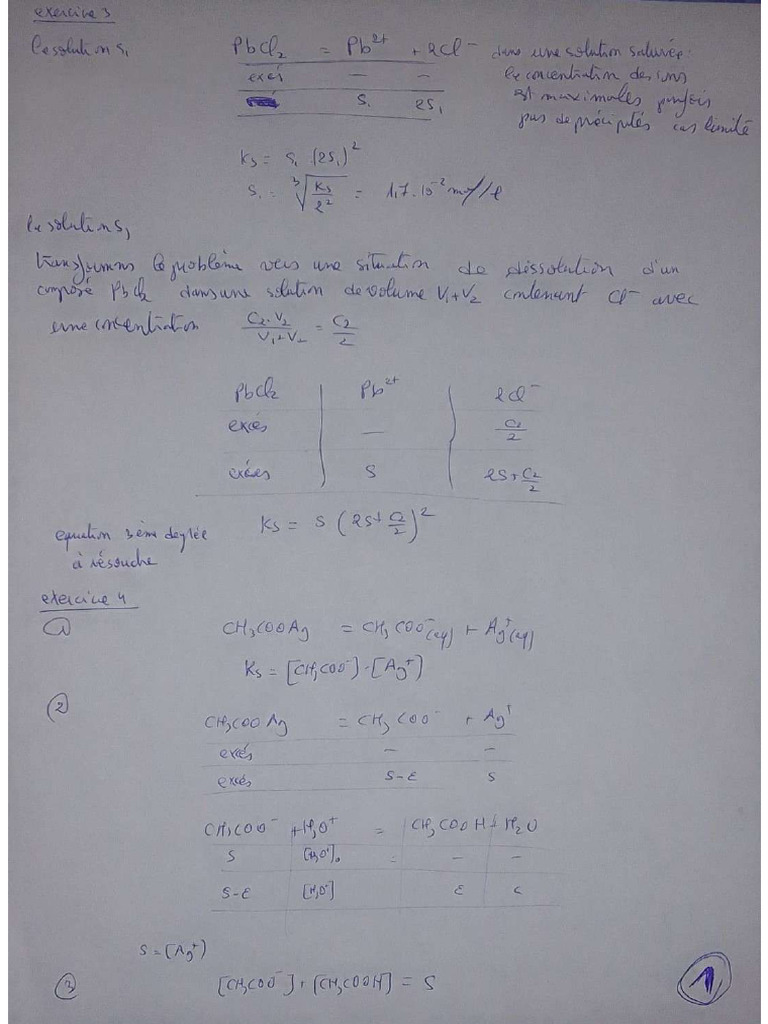 exercice 3
la solution S₁
PbCl₂ = Pb²⁺ + 2Cl⁻
excés — —
S₁ 2S₁
dans une solution saturée:
la concentration des ions
est maximales
pas de précipités cas limité
Ks = S₁ (2S₁)²
S₁ = ∛(Ks/2²) = 1,7.10⁻² mol/l
la solution S
transformons le problème vers une situation de dissolution d'un
composé PbCl₂ dans une solution de volume V₁+V₂ contenant Cl⁻ avec
une concentration C₂.V₂/(V₁+V₂) = C₂/2
PbCl₂ | Pb²⁺ | 2Cl⁻
excés | — | C₂/2
excées | S | 2S+C₂/2
Ks = S (2S+C₂/2)²
equation 3ème degrée
à résoudre
exercice 4
①
CH₃COOAg = CH₃COO⁻(aq) + Ag⁺(aq)
Ks = [CH₃COO⁻]·[Ag⁺]
②
CH₃COOAg = CH₃COO⁻ + Ag⁺
excés — —
excés S-ε S
CH₃COO⁻ + H₃O⁺ = CH₃COOH + H₂O
S [H₃O⁺]₀ = — —
S-ε [H₃O⁺] ε
S = [Ag⁺]
③ [CH₃COO⁻] + [CH₃COOH] = S
1